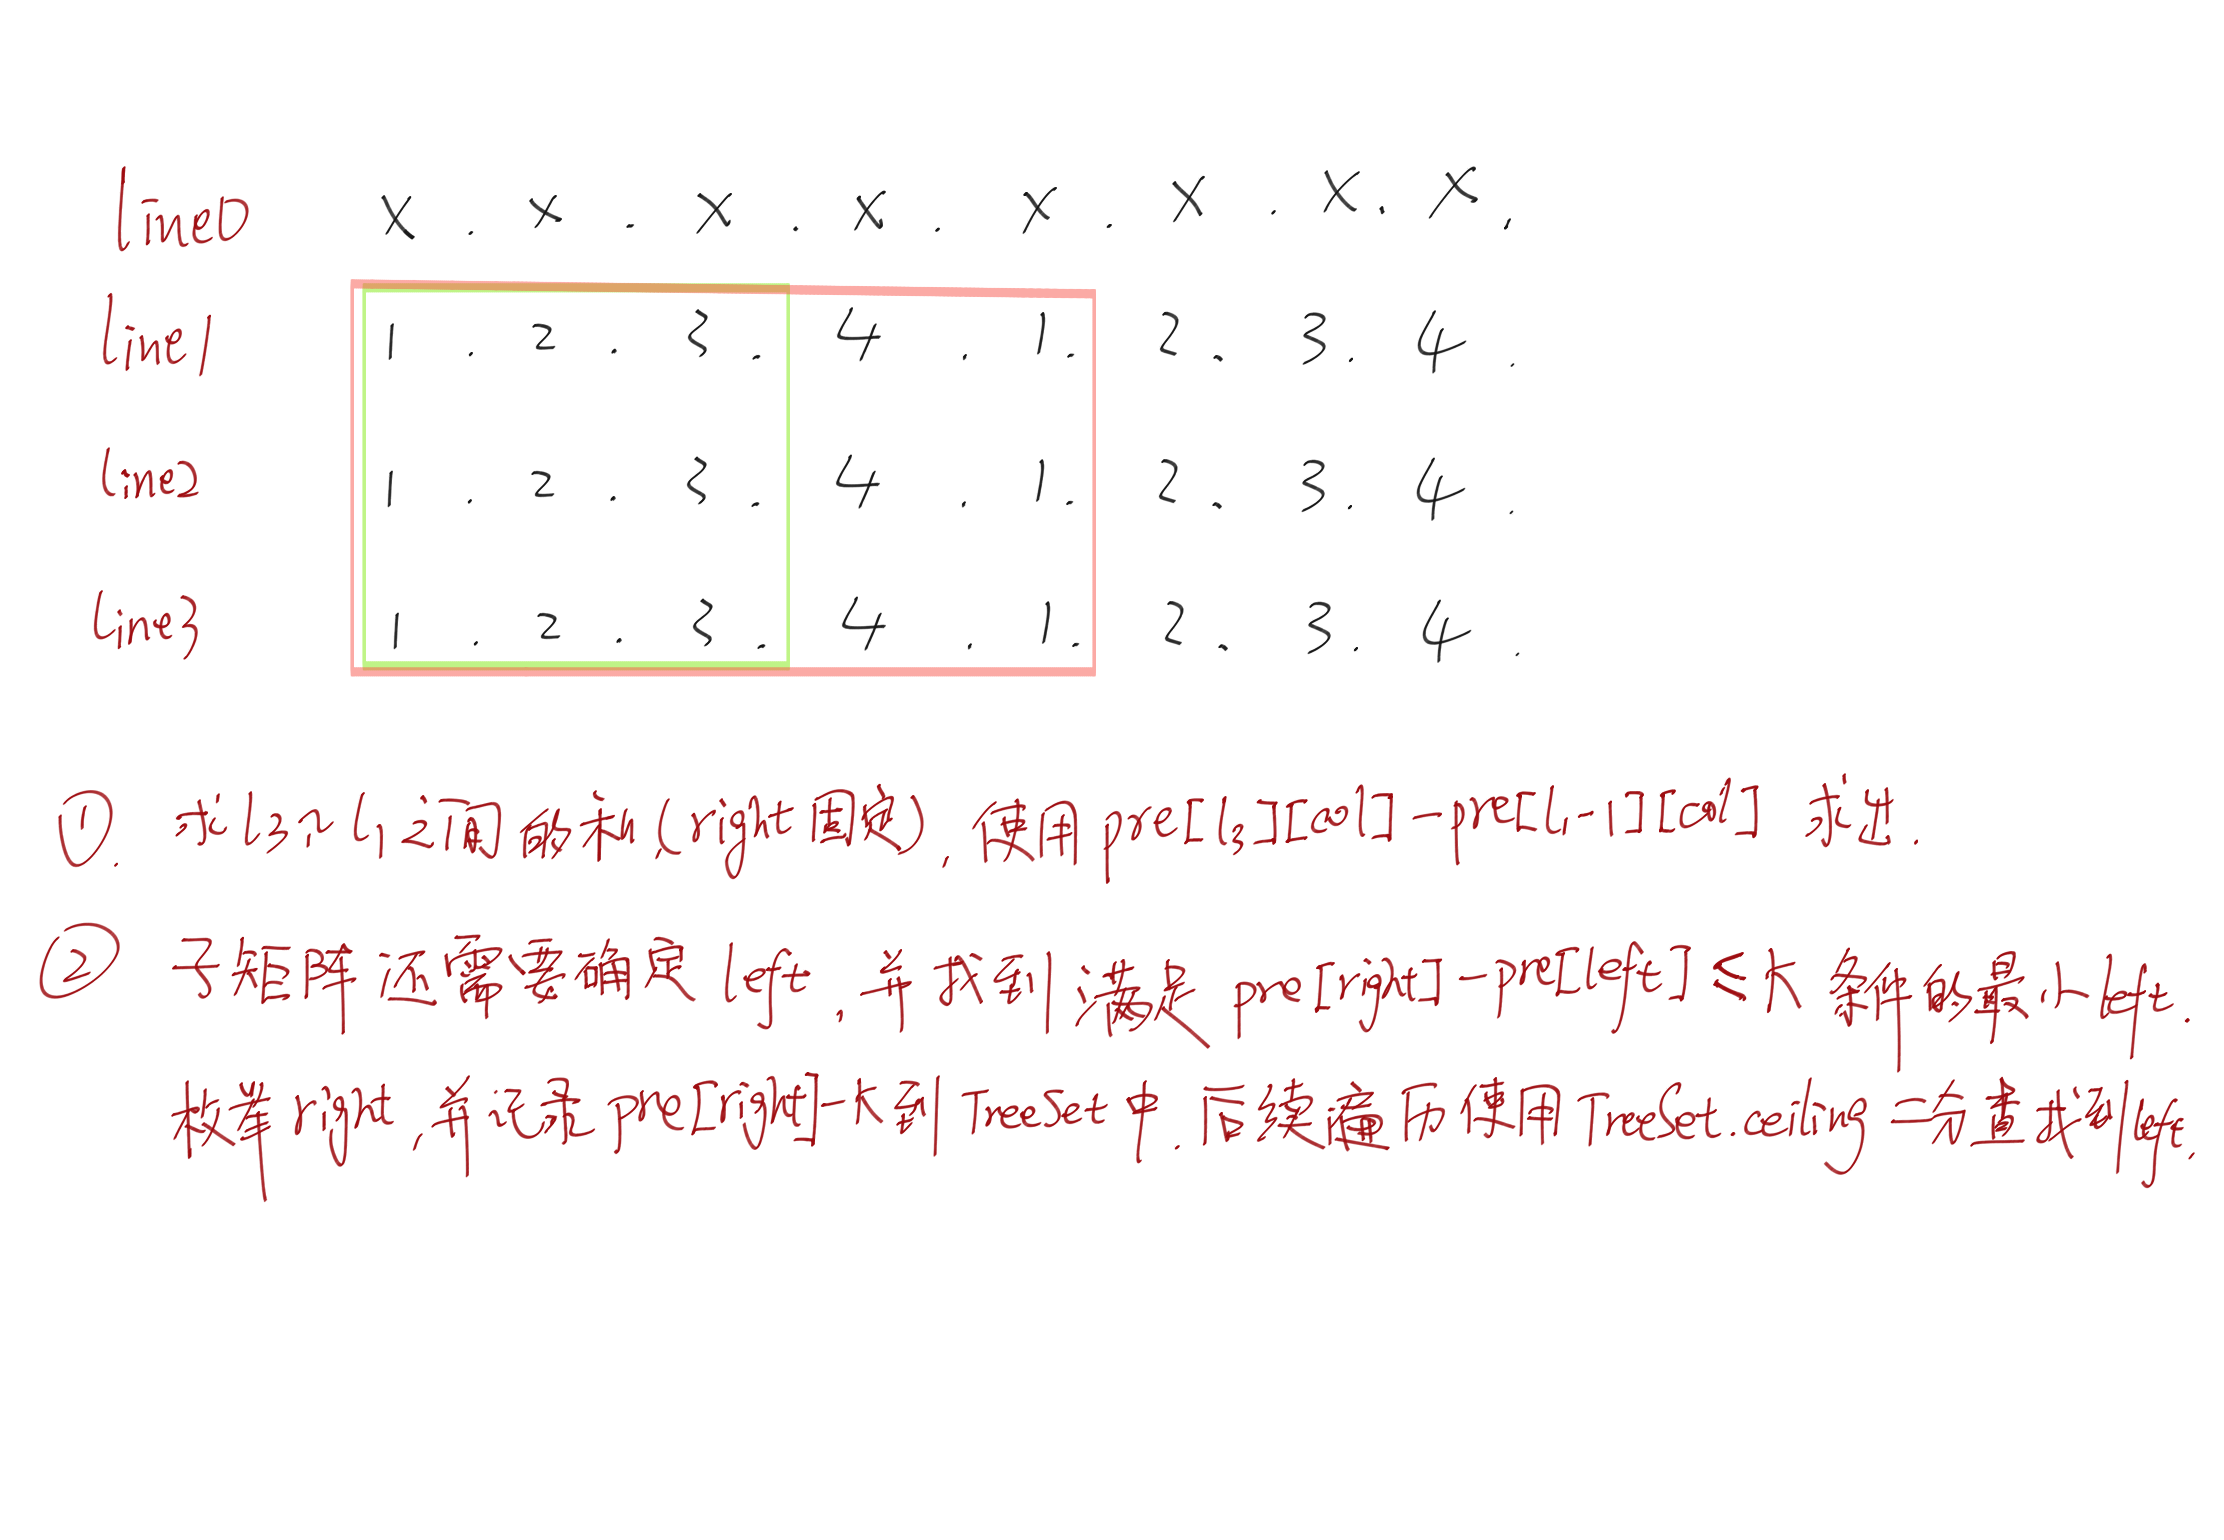 line0 x . x . x . x . x . x . x . x .
line1 1 . 2 . 3 . 4 . 1 . 2 . 3 . 4 .
line2 1 . 2 . 3 . 4 . 1 . 2 . 3 . 4 .
line3 1 . 2 . 3 . 4 . 1 . 2 . 3 . 4 .
①. 求l3~l1之间的和(right固定), 使用pre[l3][col]-pre[l1-1][col] 求出.
② 子矩阵还需要确定left, 并找到满足pre[right]-pre[left]≤k条件的最小left.
枚举right, 并记录pre[right]-k到TreeSet中. 后续遍历使用TreeSet.ceiling二分查找到left.